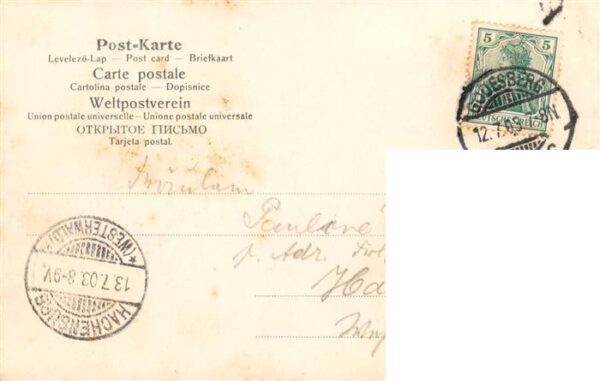 Post-Karte
Levelező-Lap — Post card — Briefkaart
Carte postale
Cartolina postale — Dopisnice
Weltpostverein
Union postale universelle — Unione postale universale
ОТКРЫТОЕ ПИСЬМО
Tarjeta postal.
5 5
DEUTSCHES REICH
GODESBERG
12.7.03. 8-9N
Fräulein
Pauline
p. Adr.
(WESTERWALD)
13.7.03.8-9V.
HACHENBURG